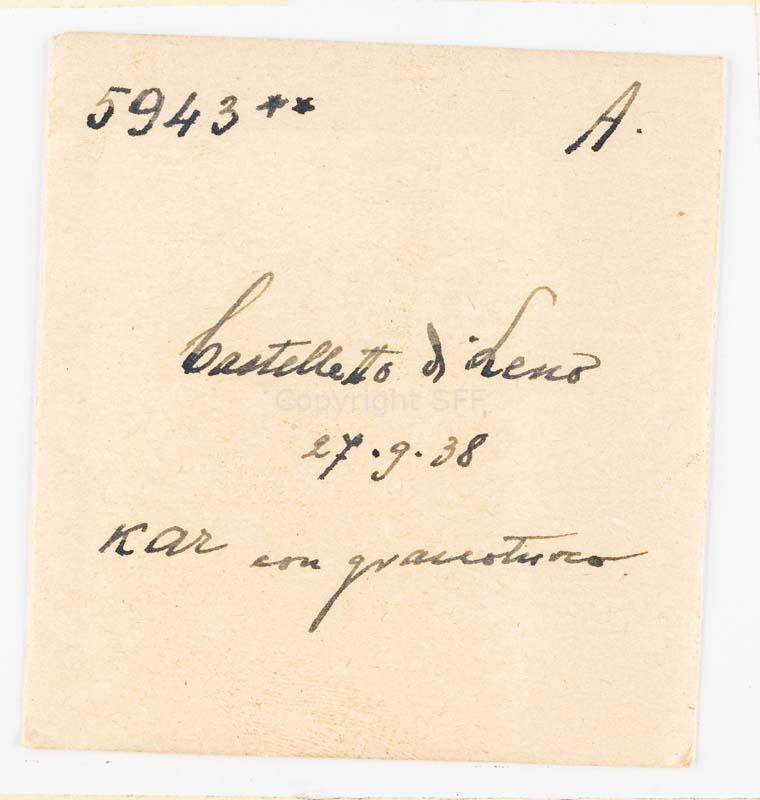 5943** A.
Castelletto di Leno
Copyright SFF
27.9.38
KAR con granoturco